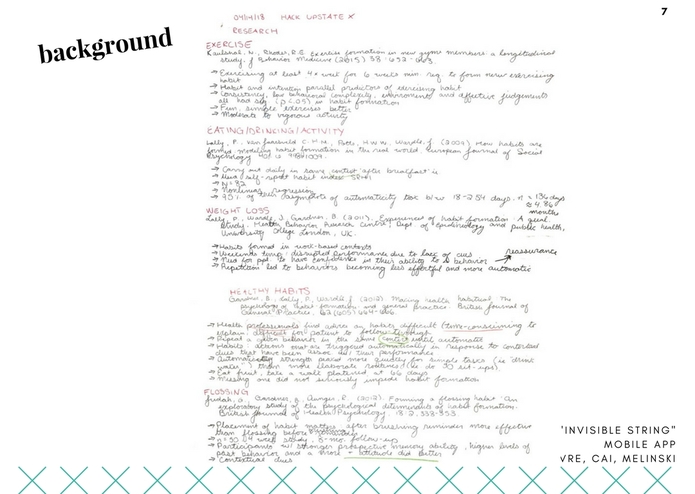 7
background
04/14/18 HACK UPSTATE X
RESEARCH
EXERCISE
Kaushal, N., Rhodes, R.E. Exercise formation in new gym members: a longitudinal
study. J Behavior Medicine (2015) 38: 652-663.
→ Exercising at least 4x week for 6 weeks min req. to form new exercising
habit
→ Habit and intention parallel predictors of exercising habit
→ Consistency, low behavioral complexity, environment and affective judgements
all had sig. (p<.05) in habit formation
→ Fun, simple exercises better
→ Moderate to vigorous activity
EATING/DRINKING/ACTIVITY
Lally, P. Van Jaarsveld C.H.M., Potts, H.W.W., Wardle, J. (2009) How habits are
formed: modeling habit formation in the real world. European Journal of Social
Psychology
→ Carry out daily in same context "after breakfast"
→ Used self-report habit index SRHI
→ Nonlinear regression
→ 95% of their asymptote of automaticity took b/w 18-254 days.
months
WEIGHT LOSS
Lally, P., Wardle, J. Gardner, B. (2011). Experiences of habit formation: A qual.
Study. Health Behavior Research Centre, Dept. of Epidemiology and public health,
University College London, UK.
→ Habits formed in work-based contexts
→ Weekends temp. disrupted performance due to lack of cues
→ Need for app. to have confidence in their ability to do behavior
reassurance
→ Repetition led to behaviors becoming less effortful and more automatic
HEALTHY HABITS
Gardner, B., Lally, P., Wardle, J. (2012). Making health habitual: The
psychology of habit-formation and general practice. British Journal of
General Practice, 62 (605) 664-666.
→ Health professionals find advice on habits difficult (time-consuming to
explain, difficult for patient to follow-through)
→ Repeat a given behavior in the same context until automatic
→ Habits: actions that are triggered automatically in response to contextual
cues that have been assoc. w/ their performance
→ Automaticity strength peaked more quickly for simple tasks (ie "drink
water") than more elaborate routines (ie do 50 sit-ups).
→ Eat fruit, take a walk plateaued at 66 days
→ Missing one did not seriously impede habit formation
FLOSSING
Judah, G., Gardner, B., Aunger, R. (2012). Forming a flossing habit: An
exploratory study of the psychological determinants of habit formation.
British Journal of Health Psychology. 18:2, 338-353.
→ Placement of habit matters after brushing reminder more effective
than flossing before
→ n=50 4 week study, 8-mo. follow-up
→ Participants w/ stronger prospective memory ability, higher levels of
past behavior and a more + attitude did better
→ Contextual cues
"INVISIBLE STRING"
MOBILE APP
VRE, CAI, MELINSKI